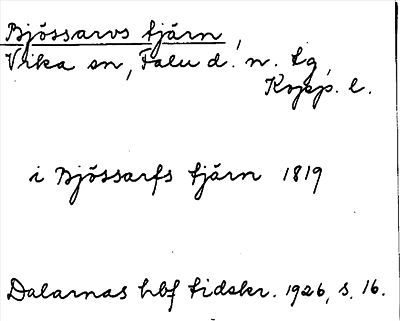 Bjössarvs tjärn,
Vika sn, Falu d. n. tg,
Kopp. l.
i Bjössarfs tjärn 1819
Dalarnas hbf tidskr. 1926, s. 16.